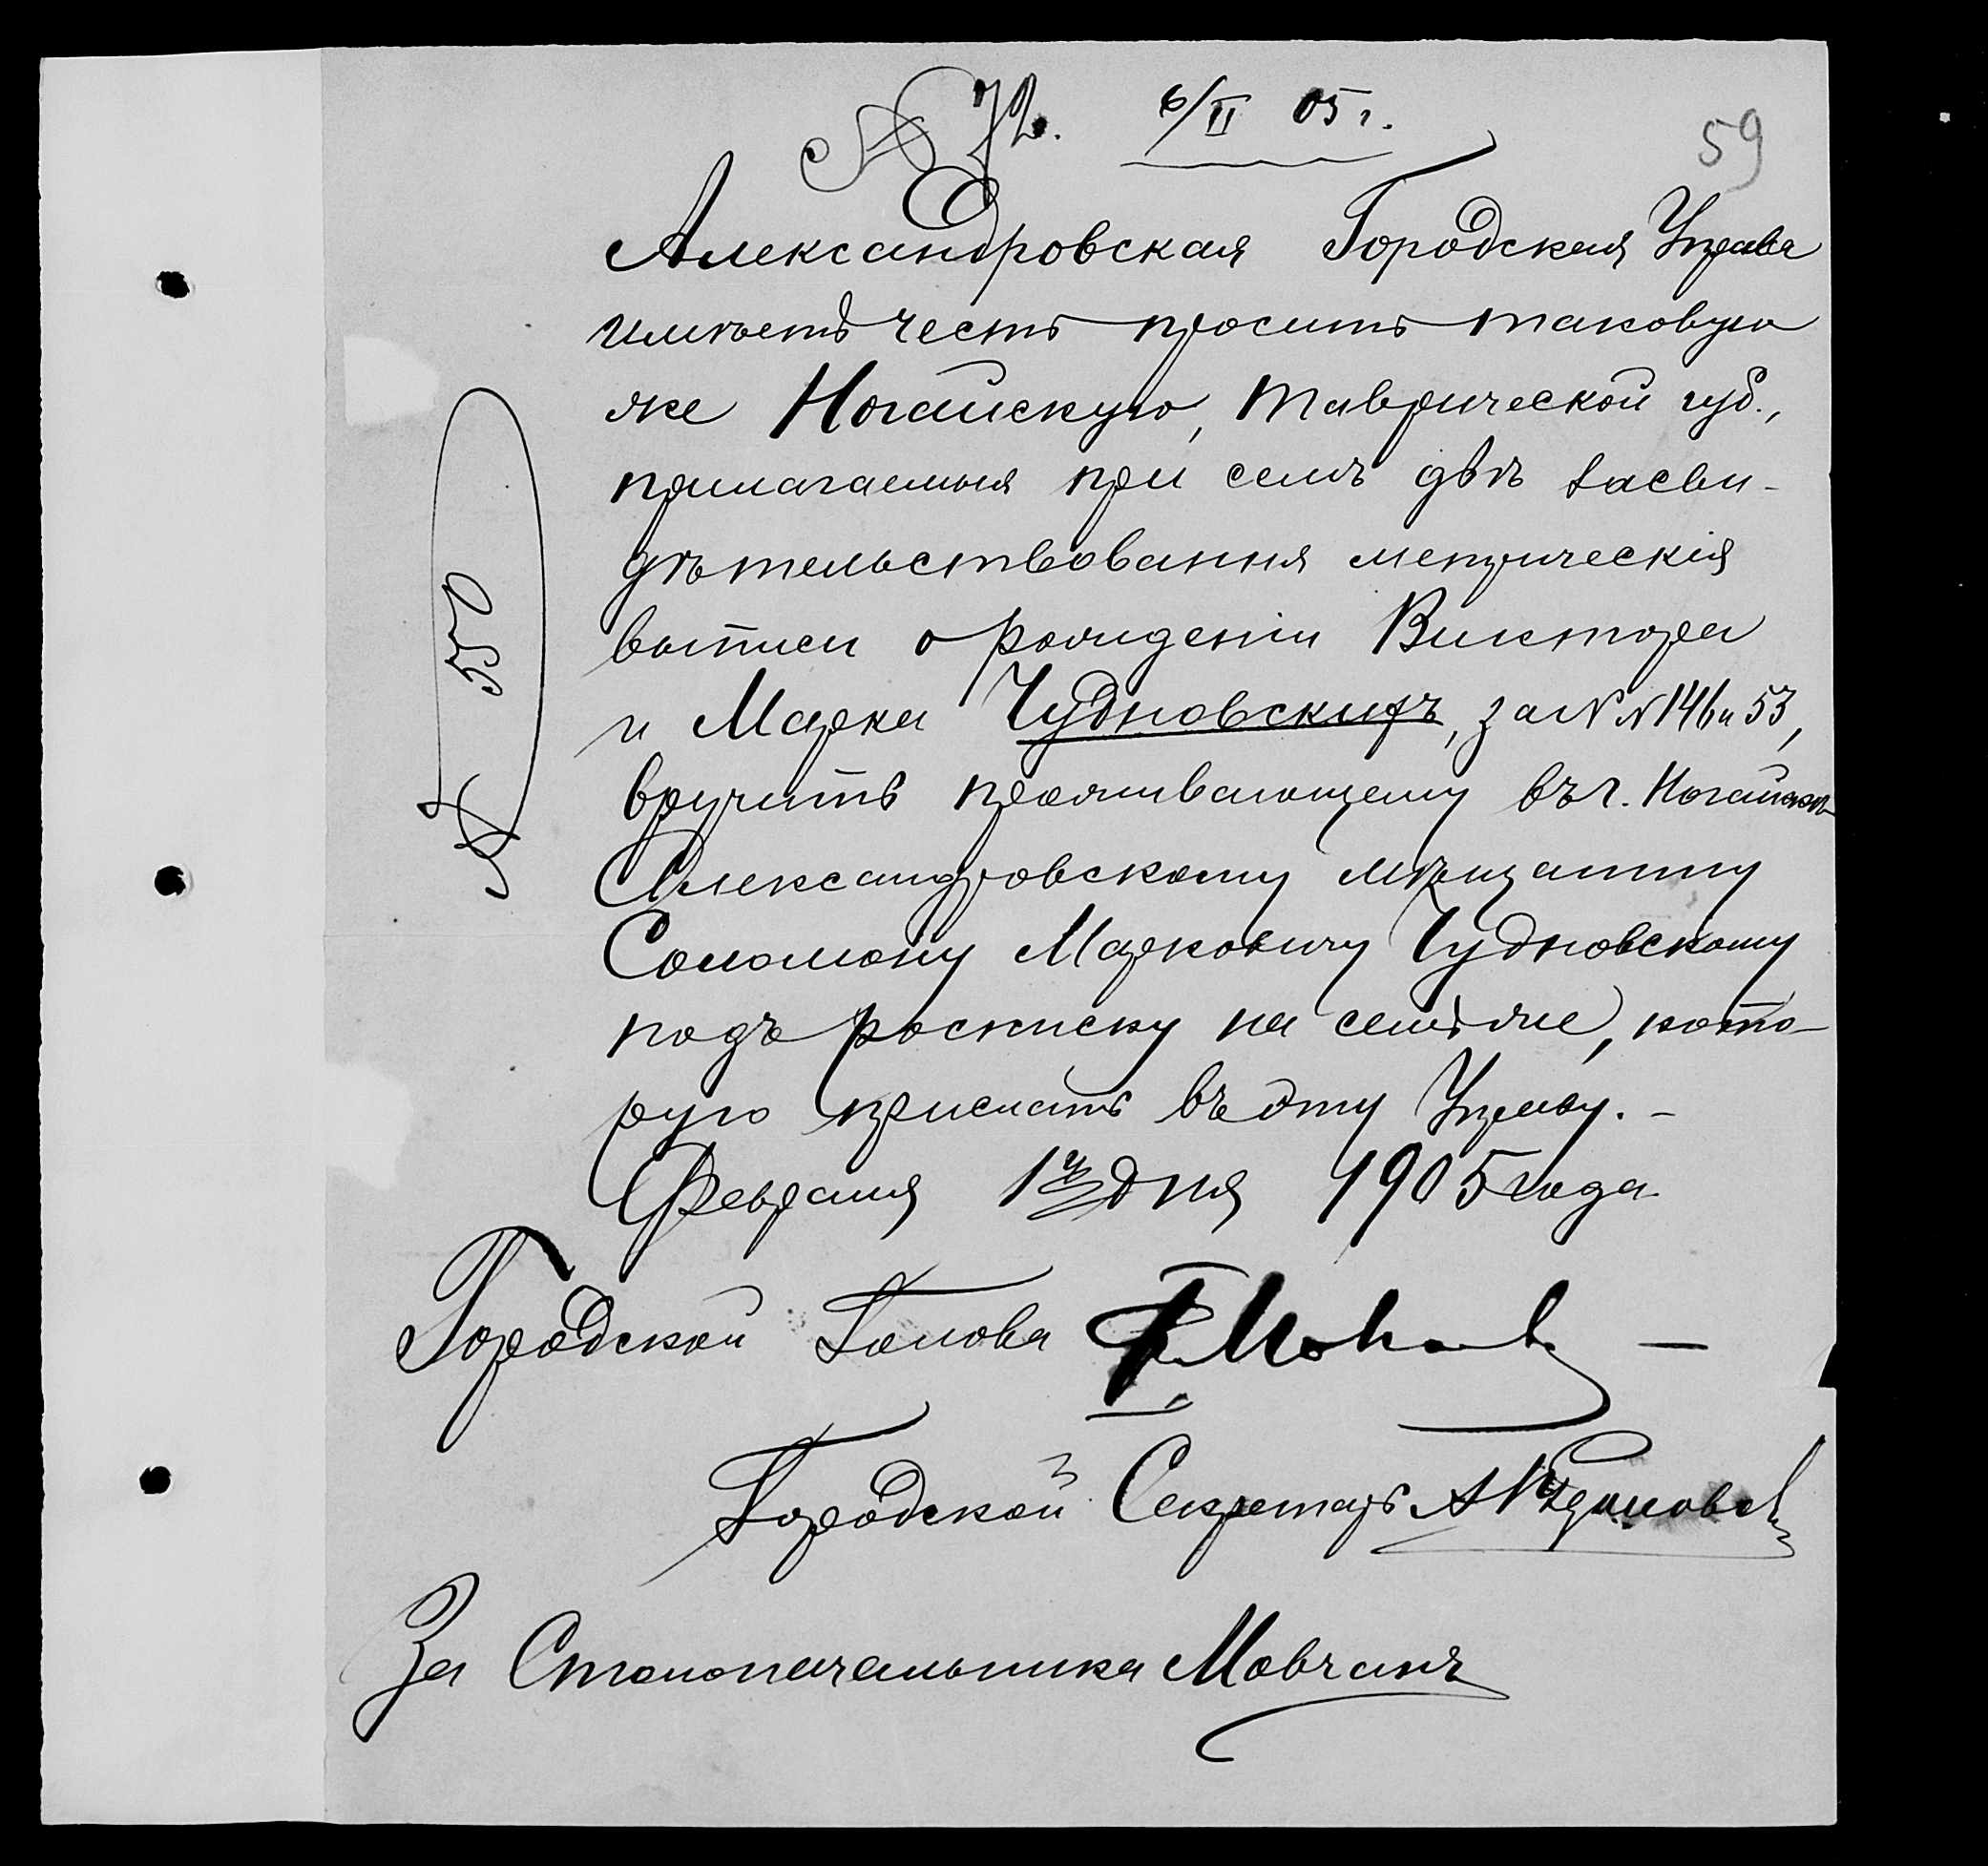 № 72. 6/II 05 г.
59
Александровская Городская Управа
имѣетъ честь просить таковую
же Ногайскую, Таврической губ.,
прилагаемыя при семъ двѣ засви-
дѣтельствованныя метрическія
выписи о рожденіи Виктора
и Марка Чудновскихъ, за №№ 146 и 53,
вручить проживающему въ г. Ногайскѣ
Александровскому мѣщанину
Соломону Марковичу Чудновскому
подъ росписку на семъ же, кото-
рую прислать въ эту Управу. -
Февраля 1го дня 1905 года
№ 550
Городской Голова
Городской Секретарь
За Столоначальника Мовчанъ